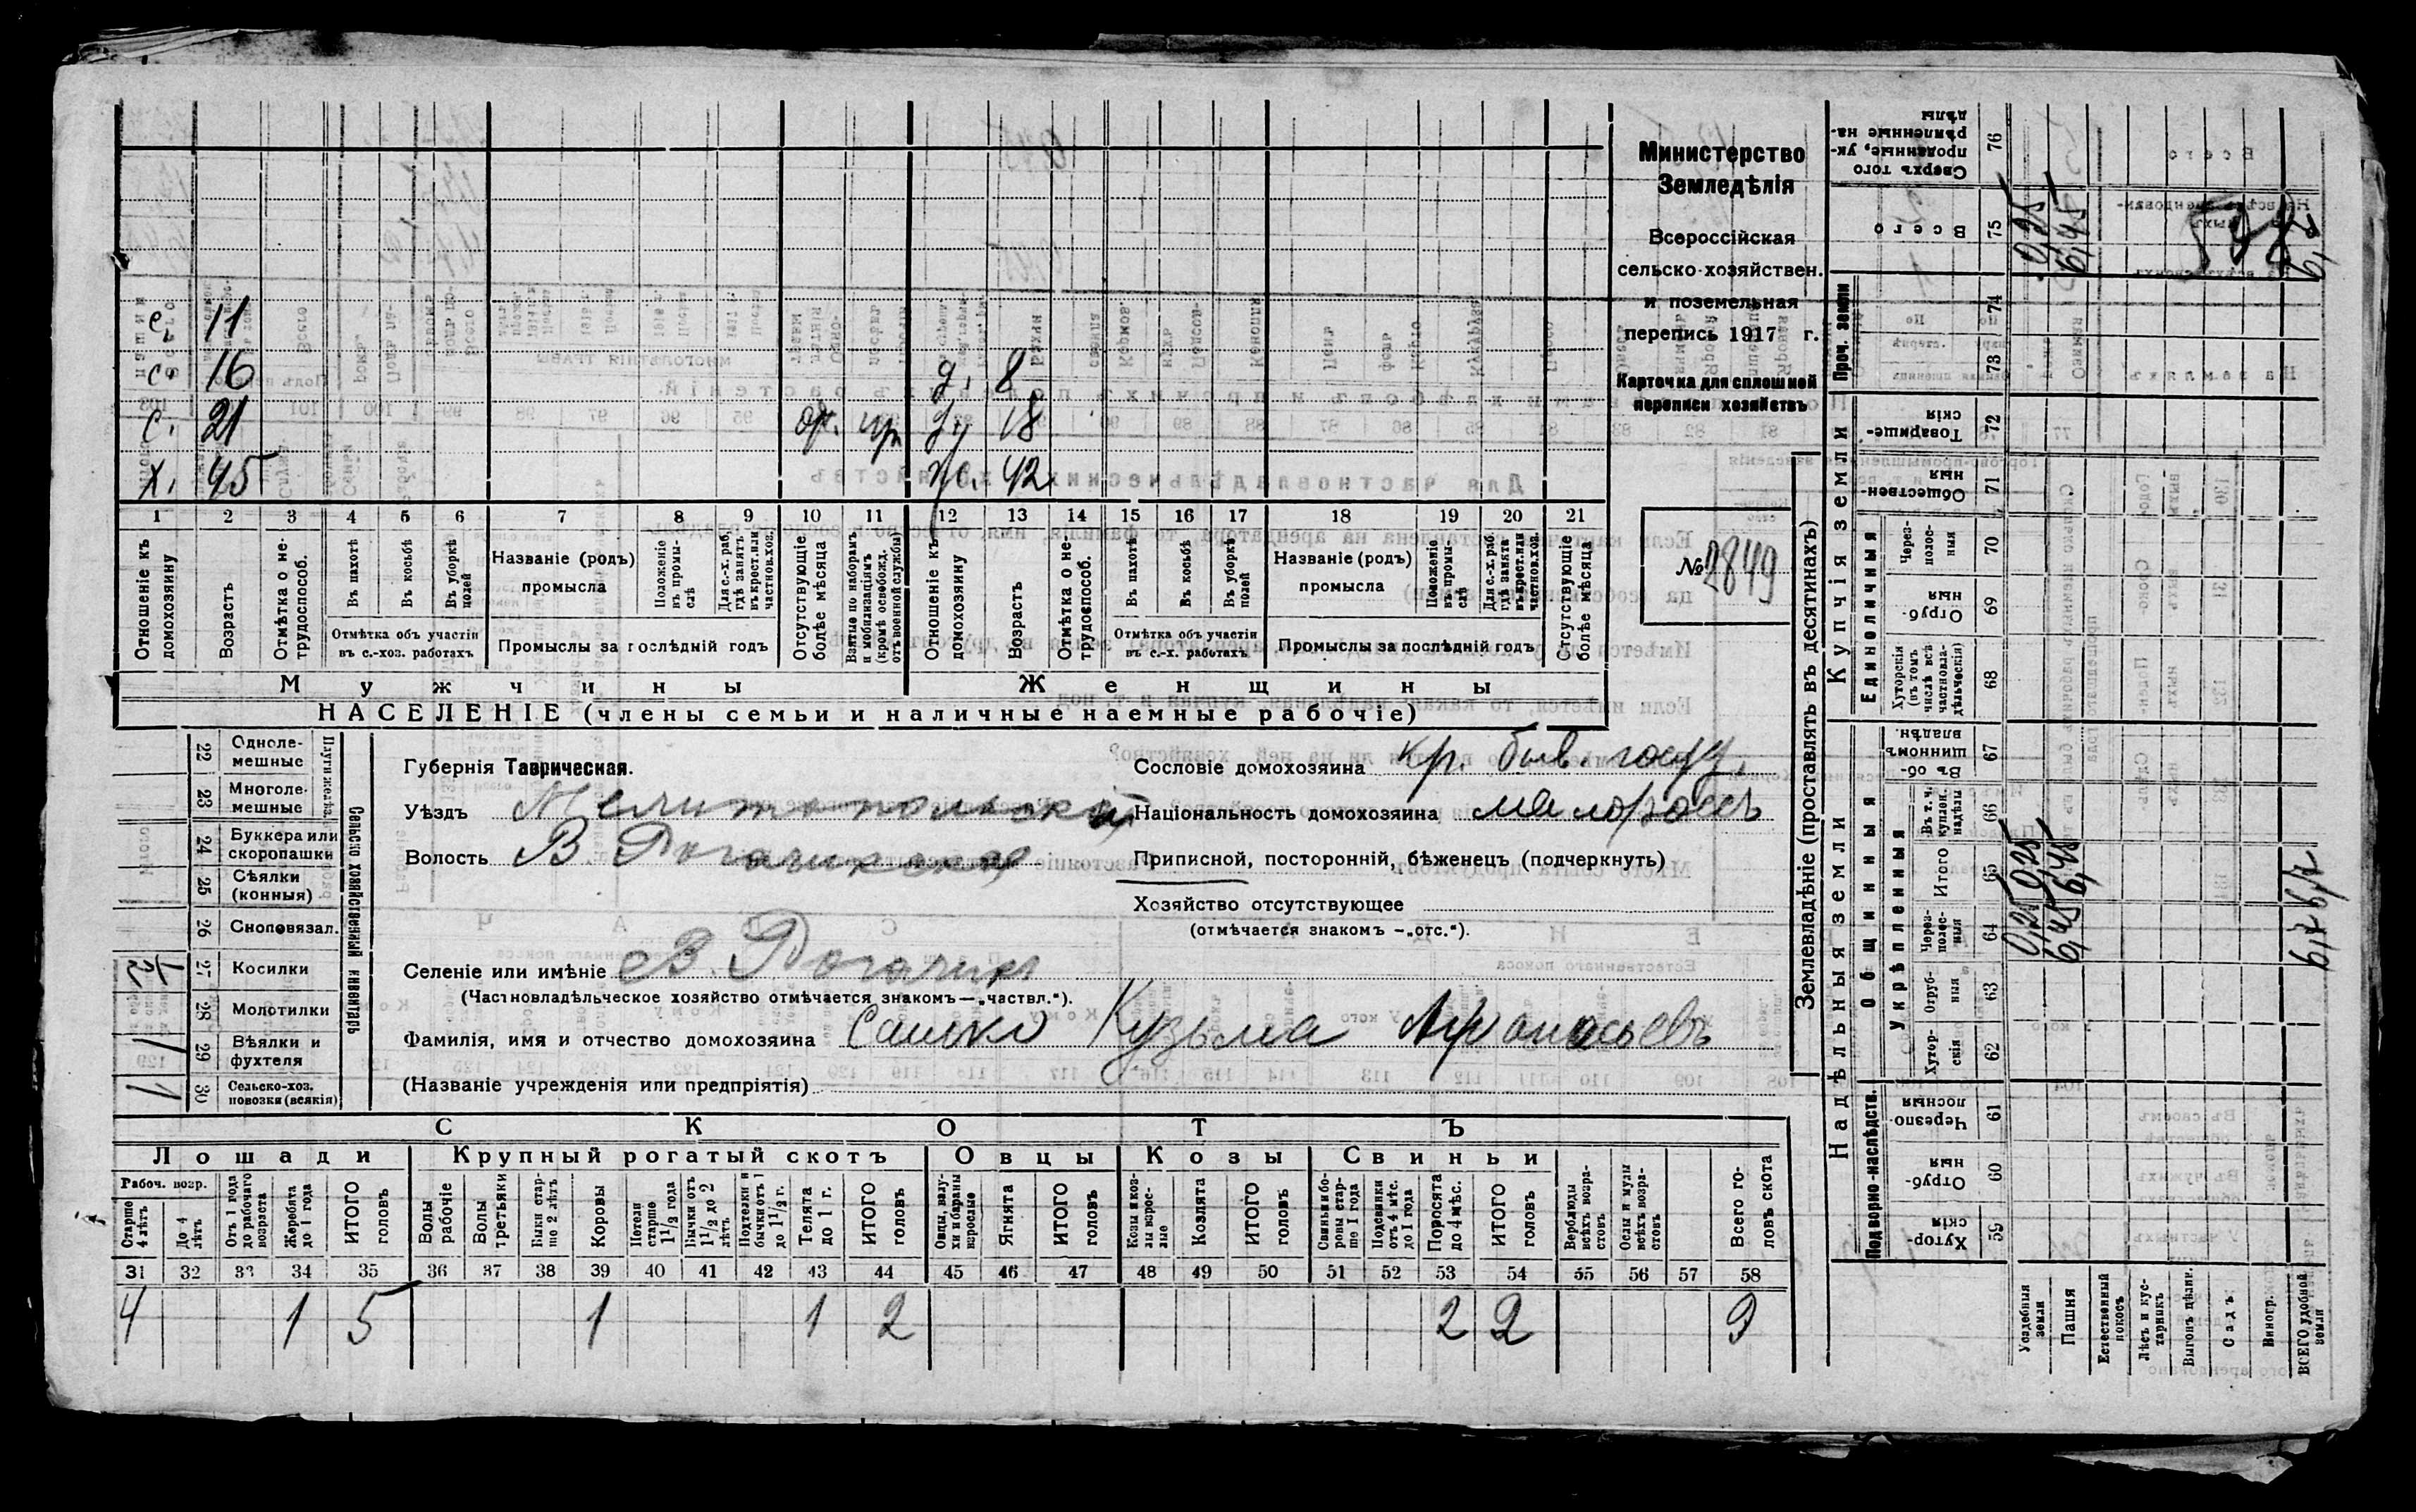 с. 11
с. 16 д. 8
с. 21 д. 18
х. 45 ж. 42
1 2 3 4 5 6 7 8 9 10 11 12 13 14 15 16 17 18 19 20 21
Отношеніе къ домохозяину
Возрастъ
Отмѣтка о не-трудоспособ.
Въ пахотѣ
Въ косьбѣ
Въ уборкѣ полей
Отмѣтка объ участіи въ с.-хоз. работахъ
Названіе (родъ) промысла
Положеніе въ промы-слѣ
Для с.-х. раб. гдѣ занятъ въ крест. или частнов. хоз.
Промыслы за послѣдній годъ
Отсутствующіе болѣе мѣсяца
Взятые по наборамъ и мобилизаціямъ (кромѣ освобожд. отъ военной службы)
Отношеніе къ домохозяину
Возрастъ
Отмѣтка о не-трудоспособ.
Въ пахотѣ
Въ косьбѣ
Въ уборкѣ полей
Отмѣтка объ участіи въ с.-х. работахъ
Названіе (родъ) промысла
Положеніе въ промы-слѣ
Для с.-х. раб. гдѣ занята въ крест. или частнов. хоз.
Промыслы за послѣдній годъ
Отсутствующіе болѣе мѣсяца
Мужчины Женщины
НАСЕЛЕНІЕ (члены семьи и наличные наемные рабочіе)
Министерство
Земледѣлія
Всероссійская
сельско-хозяйствен.
и поземельная
перепись 1917 г.
Карточка для сплошной
переписи хозяйствъ
№ 2849
22 Однолемешные
23 Многолемешные
24 Буккера или скоропашки
25 Сѣялки (конныя)
26 Сноповязал.
27 Косилки 1/2
28 Молотилки
29 Вѣялки и фухтеля 1
30 Сельско-хоз. повозки (всякія) 1
Сельско хозяйственный инвентарь
Губернія Таврическая.
Уѣздъ Мелитопольскій
Волость В. Рогачикская
Селеніе или имѣніе В. Рогачик
(Частновладѣльческое хозяйство отмѣчается знакомъ—„частвл.“).
Фамилія, имя и отчество домохозяина Сашко Кузьма Афанасьевъ
(Названіе учрежденія или предпріятія)
Сословіе домохозяина кр. быв. госуд.
Національность домохозяина малороссъ
Приписной, посторонній, бѣженецъ (подчеркнуть)
Хозяйство отсутствующее
(отмѣчается знакомъ —„отс.“).
СКОТЪ
Лошади Крупный рогатый скотъ Овцы Козы Свиньи
Рабоч. возр.
Старше 4 лѣтъ
До 4 лѣтъ
Отъ 1 года до рабочаго возраста
Жеребята до 1 года
ИТОГО головъ
Волы рабочіе
Волы третьяки
Быки старше 2 лѣтъ
Коровы
Нетели старше 1 1/2 года
Бычки отъ 1 1/2 до 2 лѣтъ
Подтелки и бычки отъ 1 до 1 1/2 г.
Телята до 1 г.
ИТОГО головъ
Овцы, валухи и бараны взрослые
Ягнята
ИТОГО головъ
Козы и козлы взрослые
Козлята
ИТОГО головъ
Свиньи и боровы старше 1 года
Подсвинки отъ 4 мѣс. до 1 года
Поросята до 4 мѣс.
ИТОГО головъ
Верблюды всѣхъ возрастовъ
Ослы и мулы всѣхъ возрастовъ
Всего головъ скота
31 32 33 34 35 36 37 38 39 40 41 42 43 44 45 46 47 48 49 50 51 52 53 54 55 56 57 58
4 1 5 1 1 2 2 2 9
Землевладѣніе (проставлять въ десятинахъ)
Надѣльныя земли
Купчія земли
Проч. земли
Подворно-наслѣдств.
Общинныя
Укрѣпленныя
Единоличныя
Сверхъ того проданные, укрѣпленные надѣлы 76
Всего 75 0,25 6,45
74
73
Товарищескія 72
Общественныя 71
Черезполосныя 70
Отрубныя 69
Хуторскія (въ томъ числѣ всѣ частновладѣльческія) 68
Въ общинномъ владѣн. 67
Въ т. ч. куплен. надѣлы 66
Итого 65 0,25 6,45
Черезполосныя 64 0,25 6,45
Отрубныя 63
Хуторскія 62
Черезполосныя 61
Отрубныя 60
Хуторскія 59
Усадебныя земли
Пашня
Естественный покосъ
Лѣсъ и кустарникъ
Выгонъ дѣлян.
Садъ
Виногр.
ВСЕГО удобной земли 6,7 6,7